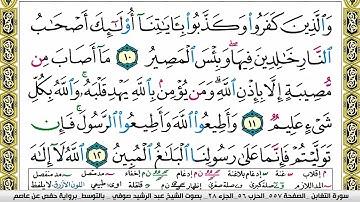 وَٱلَّذِينَ كَفَرُوا۟ وَكَذَّبُوا۟ بِـَٔايَـٰتِنَآ أُو۟لَـٰٓئِكَ أَصْحَـٰبُ
ٱلنَّارِ خَـٰلِدِينَ فِيهَا ۖ وَبِئْسَ ٱلْمَصِيرُ ١٠ مَآ أَصَابَ مِن
مُّصِيبَةٍ إِلَّا بِإِذْنِ ٱللَّهِ ۗ وَمَن يُؤْمِنۢ بِٱللَّهِ يَهْدِ قَلْبَهُۥ ۚ وَٱللَّهُ بِكُلِّ
شَىْءٍ عَلِيمٌ ١١ وَأَطِيعُوا۟ ٱللَّهَ وَأَطِيعُوا۟ ٱلرَّسُولَ ۚ فَإِن
تَوَلَّيْتُمْ فَإِنَّمَا عَلَىٰ رَسُولِنَا ٱلْبَلَـٰغُ ٱلْمُبِينُ ١٢ ٱللَّهُ لَآ إِلَـٰهَ
سورة التغابن الصفحة ٥٥٧ الحزب ٥٦ الجزء ٢٨ بصوت الشيخ عبد الرشيد صوفي - بالتوسط برواية حفص عن عاصم